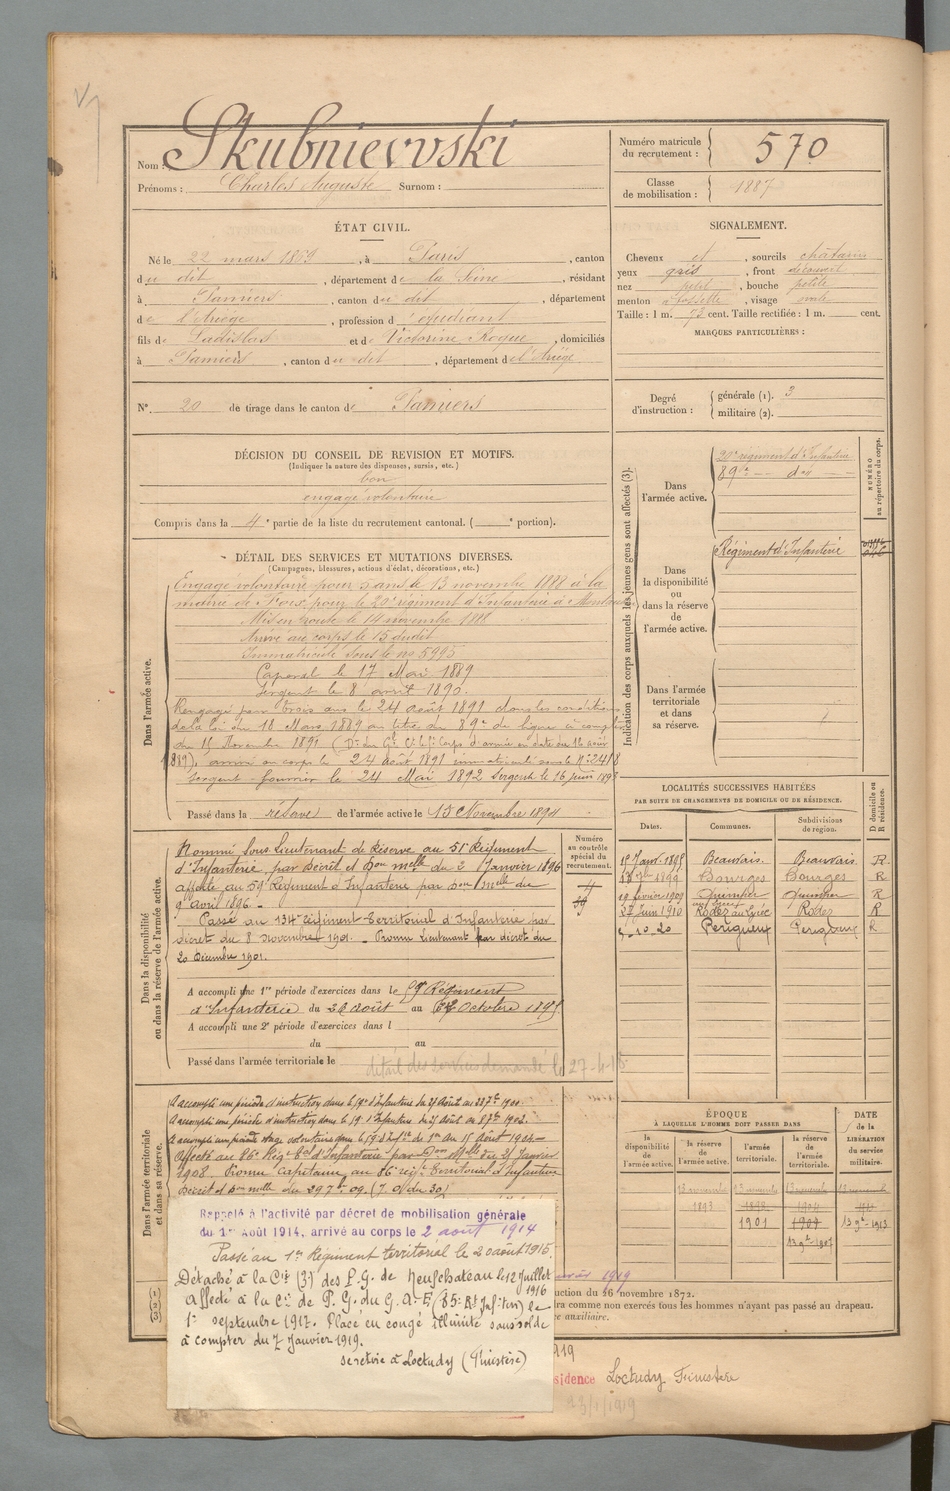 Nom : Skubniewski
Prénoms : Charles Auguste Surnom :
Numéro matricule du recrutement : 570
Classe de mobilisation : 1887
ÉTAT CIVIL.
Né le 22 mars 1869, à Paris, canton
du dit, département de la Seine, résidant
à Pamiers, canton du dit, département
de l'Ariège, profession d'étudiant
fils de Ladislas et de Victorine Roque, domiciliés
à Pamiers, canton du dit, département de l'Ariège
N° 20 de tirage dans le canton de Pamiers
SIGNALEMENT.
Cheveux et, sourcils châtains
yeux gris, front découvert
nez petit, bouche petite
menton à fossette, visage ovale
Taille : 1 m. cent. Taille rectifiée : 1 m. cent.
MARQUES PARTICULIÈRES :
Degré d'instruction : générale (1). 3
militaire (2).
DÉCISION DU CONSEIL DE REVISION ET MOTIFS.
(Indiquer la nature des dispenses, sursis, etc.)
bon
engagé volontaire
Compris dans la 4e partie de la liste du recrutement cantonal. ( e portion).
DÉTAIL DES SERVICES ET MUTATIONS DIVERSES.
(Campagnes, blessures, actions d'éclat, décorations, etc.)
Dans l'armée active.
Engagé volontaire pour 5 ans le 13 novembre 1888 à la
mairie de Foix, pour le 20e régiment d'Infanterie à
Mis en route le 14 novembre 1888
Arrivé au corps le 15 dudit
Immatriculé sous le no 5995
Caporal le 17 Mai 1889
Sergent le 8 avril 1890.
Rengagé pour trois ans le 24 août 1891 dans les conditions
de la loi du 18 Mars 1889 au titre du 89e de ligne à compter
du 15 Novembre 1891
1889), arrivé au corps le 24 août 1891 immatriculé sous le n° 2418
Sergent-fourrier le 24 Mai 1892 Sergent le 16 juin
Passé dans la réserve de l'armée active le 13 Novembre 1894
Dans la disponibilité ou dans la réserve de l'armée active.
Nommé Sous-Lieutenant de Réserve au 51e Régiment
d'Infanterie par Décret et Don melle du 2 Janvier 1896
affecté au 59e Régiment d'Infanterie par Don Melle du
9 avril 1896.
Passé au 134e régiment Territorial d'Infanterie par
décret du 8 novembre 1901. - Promu Lieutenant par décret du
20 Décembre 1901.
A accompli une 1re période d'exercices dans le Régiment
d'Infanterie du 26 août au Octobre 1895
A accompli une 2e période d'exercices dans l
du au
Passé dans l'armée territoriale le
détail des services demandé le 27-4-18
Numéro au contrôle spécial du recrutement.
Dans l'armée territoriale et dans sa réserve.
A accompli une période d'instruction dans le d'Infanterie du Août au
A accompli une période d'instruction dans le d'Infanterie du Août au 1902.
A accompli un stage volontaire dans le du 1er au 15 Août 1904
Affecté au 86e Régt d'Infanterie par Don Melle du 21 Janvier
1908. Promu Capitaine au 86e régt Territorial d'Infanterie
Décret et Don melle du 29 7bre 09. (J.O. du 30)
Rappelé à l'activité par décret de mobilisation générale
du 1er Août 1914, arrivé au corps le 2 août 1914
Passé au 1er Régiment territorial le 20 août 1915.
Détaché à la Cie (3) des P.G. de Neufchateau le 12 juillet 1916
Affecté à la Cie de P.G. du G.A.E. (85e Rt Inf. Ter) le
1er septembre 1917. Placé en congé illimité sans solde
à compter du 7 Janvier 1919.
se retire à Loctudy (Finistère)
Indication des corps auxquels les jeunes gens sont affectés (3).
Dans l'armée active.
20e régiment d'Infanterie
89e — do —
NUMÉRO au répertoire du corps.
Dans la disponibilité ou dans la réserve de l'armée active.
Régiment d'Infanterie
Dans l'armée territoriale et dans sa réserve.
LOCALITÉS SUCCESSIVES HABITÉES
PAR SUITE DE CHANGEMENTS DE DOMICILE OU DE RÉSIDENCE.
Dates. Communes. Subdivisions de région. D domicile ou R résidence.
Janv. 1895 Beauvais Beauvais R
1899 Bourges Bourges R
19 février 1909 Quimper Quimper R
27 Juin 1910 Rodez au Lycée Rodez R
5-10-20 Périgueux Périgueux R
ÉPOQUE
À LAQUELLE L'HOMME DOIT PASSER DANS
la disponibilité de l'armée active. la réserve de l'armée active. l'armée territoriale. la réserve de l'armée territoriale.
DATE de la LIBÉRATION du service militaire.
1893
1901
13 9bre 1907
13 9bre 1913
1919
uction du 26 novembre 1872.
dra comme non exercés tous les hommes n'ayant pas passé au drapeau.
e auxiliaire.
919
sidence Loctudy Finistère
23/1/1919